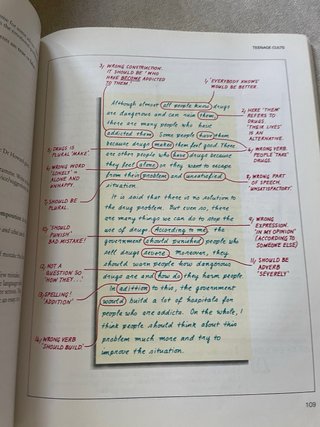 TEENAGE CULTS
3/ WRONG CONSTRUCTION.
IT SHOULD BE 'WHO
HAVE BECOME ADDICTED
TO THEM'
1/ 'EVERYBODY KNOWS'
WOULD BE BETTER.
2/ HERE 'THEM'
REFERS TO
DRUGS.
'THEIR LIVES'
IS AN
ALTERNATIVE.
5/ DRUGS IS
PLURAL 'MAKE'.
WRONG VERB
PEOPLE 'TAKE'
DRUGS.
WRONG WORD
'LONELY' =
ALONE AND
UNHAPPY.
8/ WRONG PART
OF SPEECH.
'UNSATISFACTORY'.
SHOULD BE
PLURAL.
9/ WRONG
EXPRESSION.
'IN MY OPINION'
(ACCORDING TO
SOMEONE ELSE)
'SHOULD
PUNISH'
BAD MISTAKE!
SHOULD BE
ADVERB
'SEVERELY'
12/ NOT A
QUESTION SO
'HOW THEY...'
13/ SPELLING!
'ADDITION'
14/ WRONG VERB
'SHOULD BUILD'.
Although almost all people know drugs
are dangerous and can ruin them,
there are many people who have
addicted them. Some people have them
because drugs makes them feel good. There
are other people who have drugs because
they feel alone or they want to escape
from their problem and unsatisfied
situation.
It is said that there is no solution to
the drug problem. But even so, there
are many things we can do to stop the
use of drugs. According to me, the
government should punished people who
sell drugs severe. Moreover, they
should warn people how dangerous
drugs are and how do they harm people.
In adittion to this, the government
would build a lot of hospitals for
people who are addicts. On the whole, I
think people should think about this
problem much more and try to
improve the situation.
109